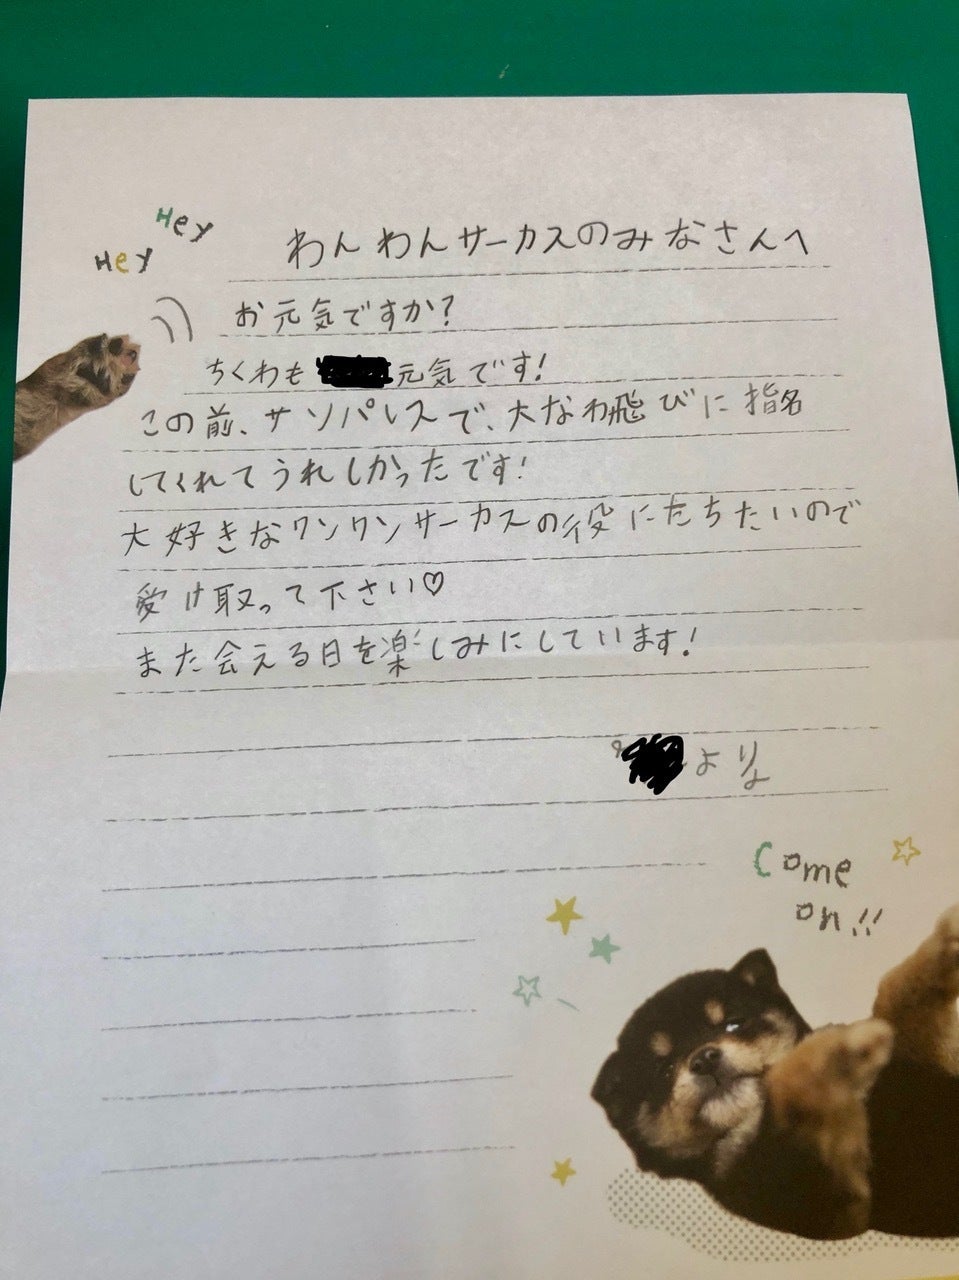 Hey
Hey
わんわんサーカスのみなさんへ
お元気ですか?
ちくわも 元気です!
この前、サンパレスで、大なわ飛びに指名
してくれてうれしかったです!
大好きなワンワンサーカスの役にたちたいので
受け取って下さい♡
また会える日を楽しみにしています!
より
Come
on!!